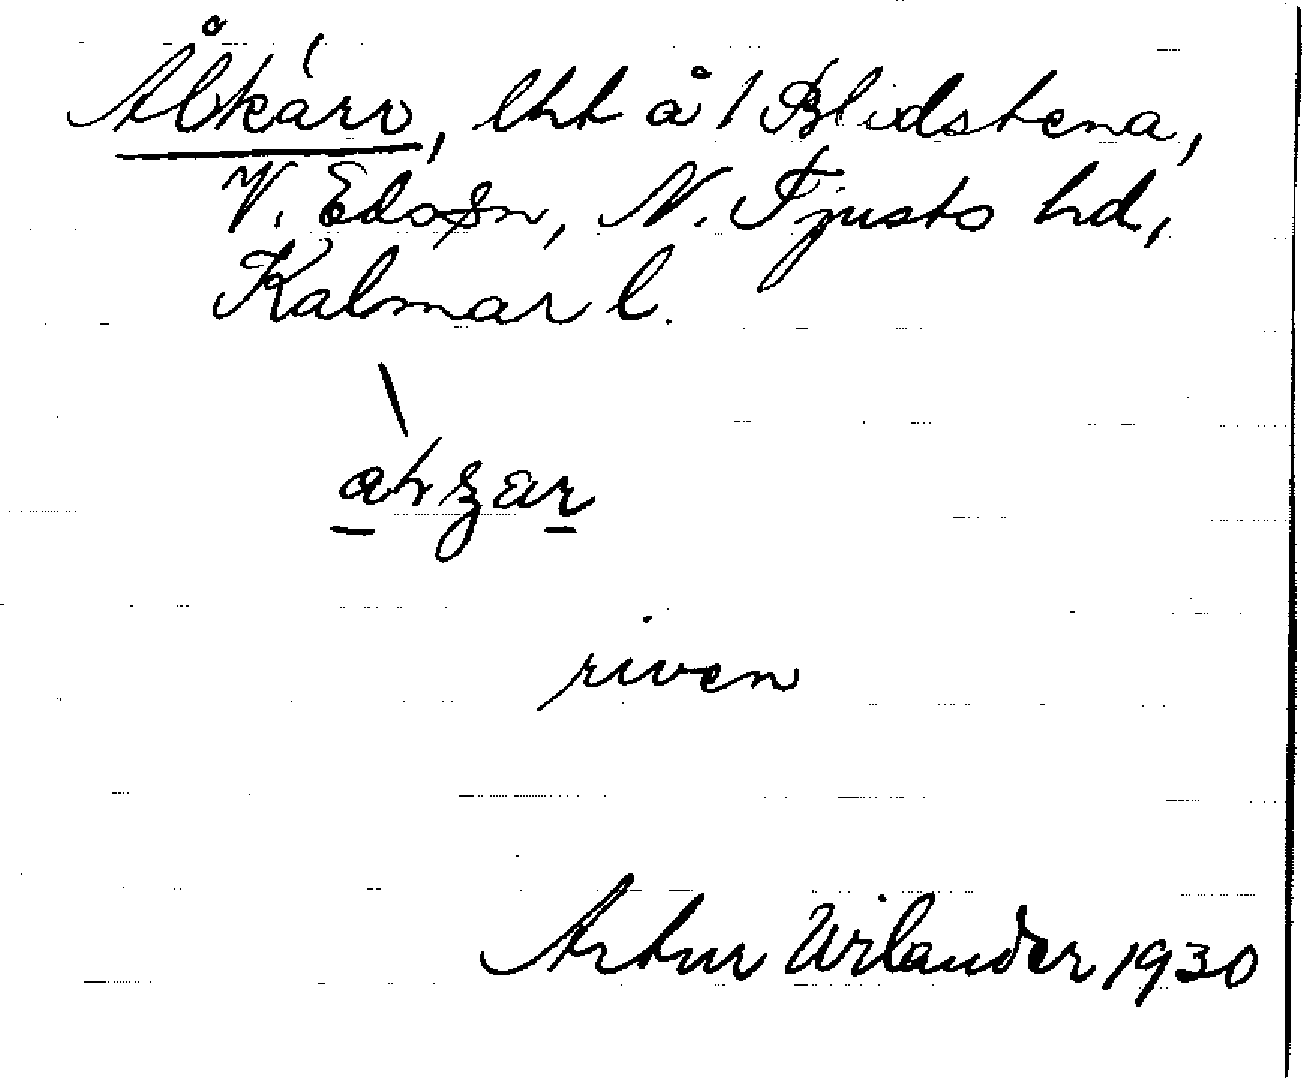 Ålkärr, lht å 1 Blidstena,
V. Eds sn, N. Tjusts hd,
Kalmar l.
riven
Artur Wilander 1930